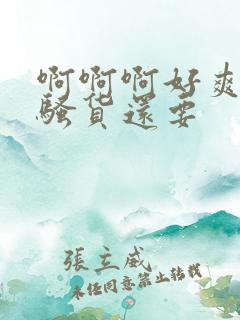 啊啊啊好爽
骚货還要
張立威
未经同意禁止转载